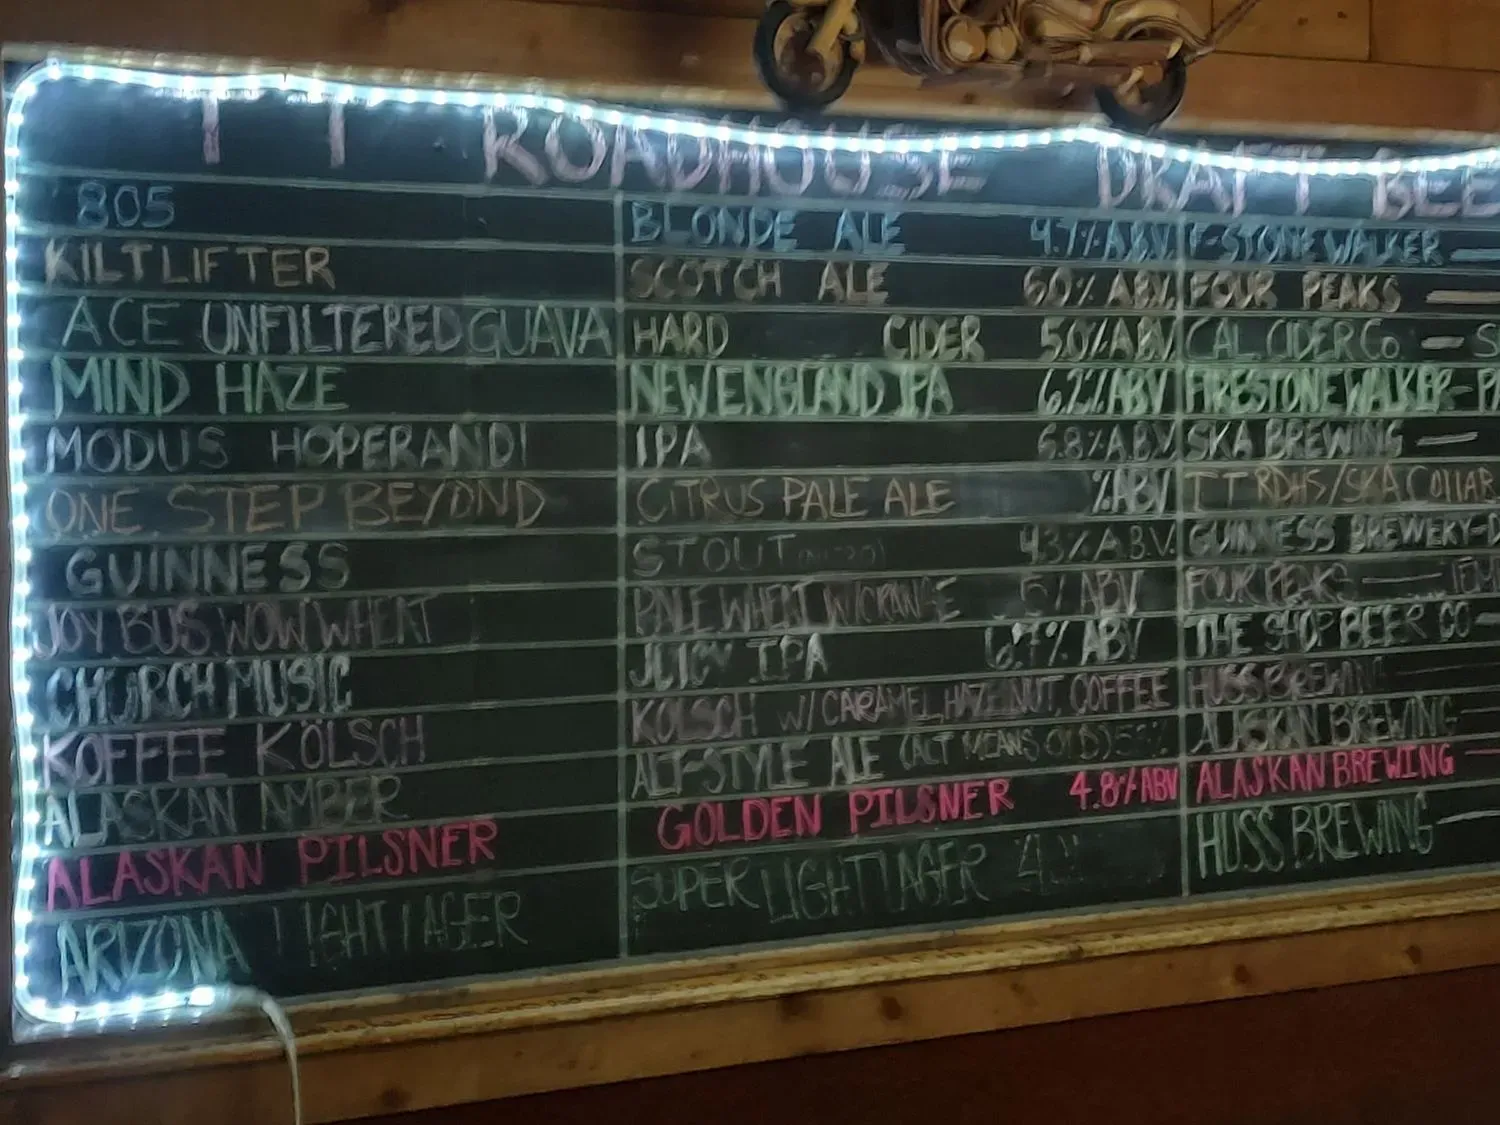 TT ROADHOUSE DRAFT BEE
805 BLONDE ALE 4.7% A.B.V. F-STONE WALKER
KILTLIFTER SCOTCH ALE 6.0% ABV. FOUR PEAKS
ACE UNFILTERED GUAVA HARD CIDER 5.0% ABV CAL. CIDER Co. - S
MIND HAZE NEW ENGLAND IPA 6.2% ABV FIRESTONE WALKER - PA
MODUS HOPERANDI IPA 6.8% A.B.V. SKA BREWING
ONE STEP BEYOND CITRUS PALE ALE %ABV TT RDHS/SKA COLLAB
GUINNESS STOUT 4.3% A.B.V. GUINNESS BREWERY-D
JOY BUS WOW WHEAT PALE WHEAT W/ORANGE 5% ABV FOUR PEAKS TEM
CHURCH MUSIC JUICY IPA 6.7% ABV THE SHOP BEER CO
KOFFEE KÖLSCH KOLSCH W/CARAMEL, HAZELNUT, COFFEE HUSS BREWING
ALASKAN AMBER ALT-STYLE ALE (ALT MEANS OLD) ALASKAN BREWING
ALASKAN PILSNER GOLDEN PILSNER 4.8% ABV ALASKAN BREWING
ARIZONA LIGHT LAGER SUPER LIGHT LAGER HUSS BREWING